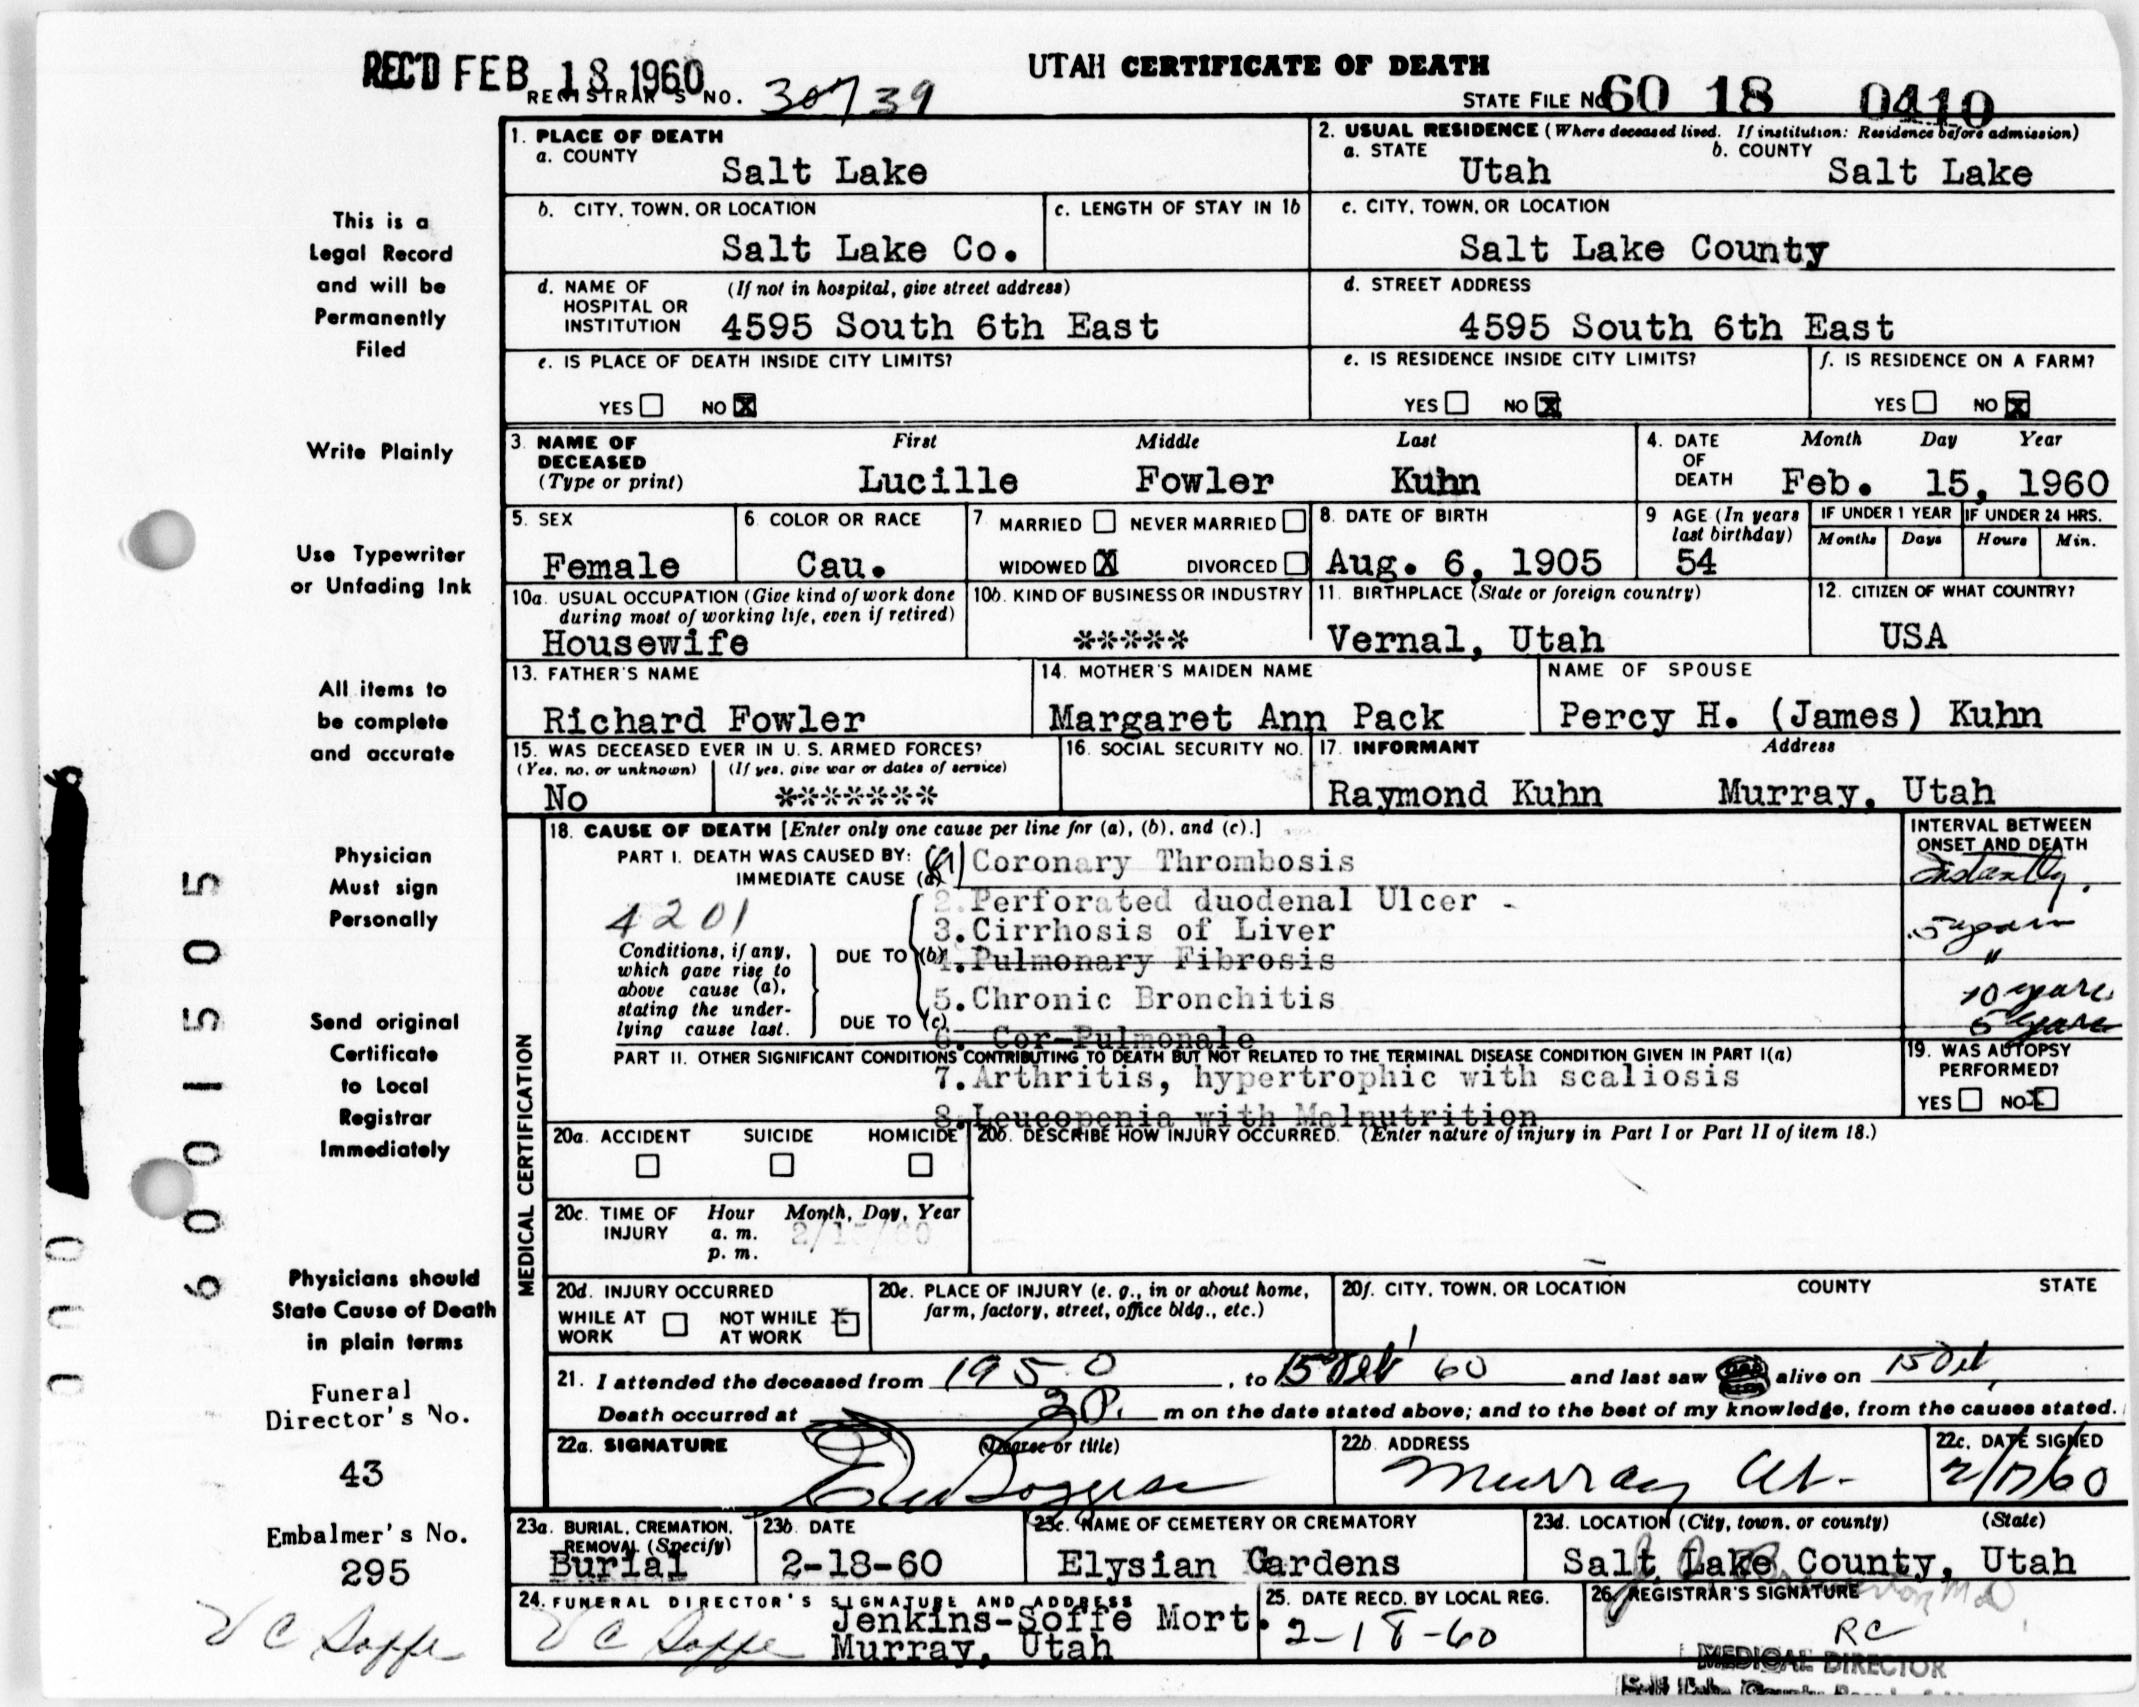 REC'D FEB 18 1960
UTAH CERTIFICATE OF DEATH
REGISTRAR'S NO. 30739
STATE FILE NO. 60 18 0410
This is a
Legal Record
and will be
Permanently
Filed
Write Plainly
Use Typewriter
or Unfading Ink
All items to
be complete
and accurate
Physician
Must sign
Personally
Send original
Certificate
to Local
Registrar
Immediately
Physicians should
State Cause of Death
in plain terms
Funeral
Director's No.
43
Embalmer's No.
295
6001505
1. PLACE OF DEATH
a. COUNTY
Salt Lake
2. USUAL RESIDENCE (Where deceased lived. If institution: Residence before admission)
a. STATE b. COUNTY
Utah Salt Lake
b. CITY, TOWN, OR LOCATION
Salt Lake Co.
c. LENGTH OF STAY IN 1b
c. CITY, TOWN, OR LOCATION
Salt Lake County
d. NAME OF HOSPITAL OR INSTITUTION (If not in hospital, give street address)
4595 South 6th East
d. STREET ADDRESS
4595 South 6th East
e. IS PLACE OF DEATH INSIDE CITY LIMITS?
YES NO X
e. IS RESIDENCE INSIDE CITY LIMITS?
YES NO X
f. IS RESIDENCE ON A FARM?
YES NO X
3. NAME OF DECEASED (Type or print)
First Middle Last
Lucille Fowler Kuhn
4. DATE OF DEATH
Month Day Year
Feb. 15, 1960
5. SEX
Female
6. COLOR OR RACE
Cau.
7. MARRIED NEVER MARRIED
WIDOWED X DIVORCED
8. DATE OF BIRTH
Aug. 6, 1905
9. AGE (In years last birthday)
54
IF UNDER 1 YEAR
Months Days
IF UNDER 24 HRS.
Hours Min.
10a. USUAL OCCUPATION (Give kind of work done during most of working life, even if retired)
Housewife
10b. KIND OF BUSINESS OR INDUSTRY
*****
11. BIRTHPLACE (State or foreign country)
Vernal, Utah
12. CITIZEN OF WHAT COUNTRY?
USA
13. FATHER'S NAME
Richard Fowler
14. MOTHER'S MAIDEN NAME
Margaret Ann Pack
NAME OF SPOUSE
Percy H. (James) Kuhn
15. WAS DECEASED EVER IN U. S. ARMED FORCES?
(Yes, no, or unknown) (If yes, give war or dates of service)
No *******
16. SOCIAL SECURITY NO.
17. INFORMANT Address
Raymond Kuhn Murray, Utah
MEDICAL CERTIFICATION
18. CAUSE OF DEATH [Enter only one cause per line for (a), (b), and (c).]
PART I. DEATH WAS CAUSED BY:
IMMEDIATE CAUSE (a)
Coronary Thrombosis
4201
2. Perforated duodenal Ulcer -
3. Cirrhosis of Liver
Conditions, if any, which gave rise to above cause (a), stating the underlying cause last.
DUE TO (b)
4. Pulmonary Fibrosis
5. Chronic Bronchitis
DUE TO (c)
6. Cor-Pulmonale
INTERVAL BETWEEN
ONSET AND DEATH
Instantly
5 years
"
10 years
5 years
PART II. OTHER SIGNIFICANT CONDITIONS CONTRIBUTING TO DEATH BUT NOT RELATED TO THE TERMINAL DISEASE CONDITION GIVEN IN PART I(a)
7. Arthritis, hypertrophic with scaliosis
8. Leucopenia with Malnutrition
19. WAS AUTOPSY PERFORMED?
YES NO X
20a. ACCIDENT SUICIDE HOMICIDE
20b. DESCRIBE HOW INJURY OCCURRED. (Enter nature of injury in Part I or Part II of item 18.)
20c. TIME OF INJURY
Hour Month, Day, Year
a. m.
p. m.
20d. INJURY OCCURRED
WHILE AT WORK NOT WHILE AT WORK
20e. PLACE OF INJURY (e. g., in or about home, farm, factory, street, office bldg., etc.)
20f. CITY, TOWN, OR LOCATION COUNTY STATE
21. I attended the deceased from 1950, to 15 Feb 60 and last saw alive on 15 Feb
Death occurred at 2 P. m on the date stated above; and to the best of my knowledge, from the causes stated.
22a. SIGNATURE (Degree or title)
22b. ADDRESS
Murray Ut.
22c. DATE SIGNED
2/17/60
23a. BURIAL, CREMATION, REMOVAL (Specify)
Burial
23b. DATE
2-18-60
23c. NAME OF CEMETERY OR CREMATORY
Elysian Gardens
23d. LOCATION (City, town, or county) (State)
Salt Lake County, Utah
24. FUNERAL DIRECTOR'S SIGNATURE AND ADDRESS
V C Soffe V C Soffe
Jenkins-Soffe Mort.
Murray, Utah
25. DATE RECD. BY LOCAL REG.
2-18-60
26. REGISTRAR'S SIGNATURE
RC
MEDICAL DIRECTOR